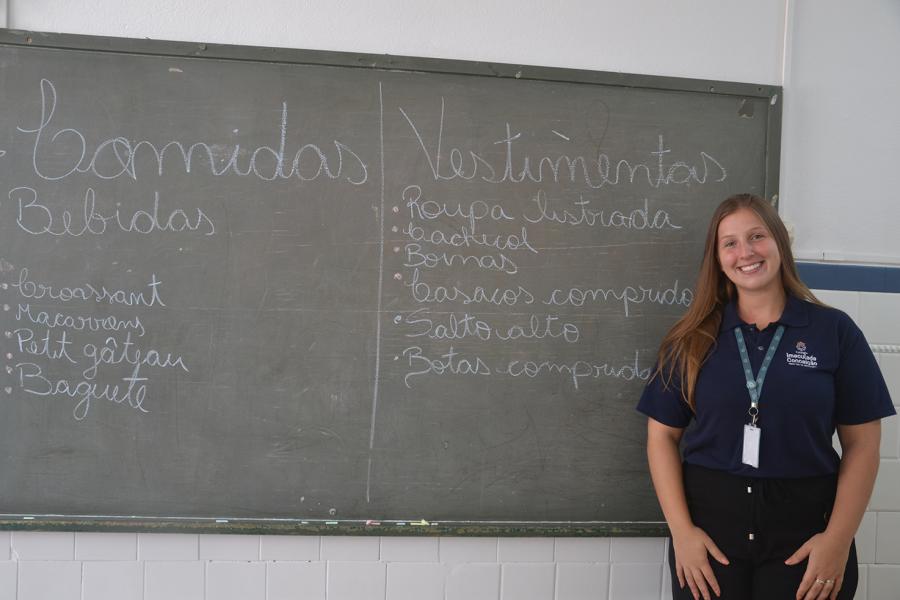 Comidas
Bebidas
Croassant
Macarrons
Petit gâteau
Baguete
Vestimentas
Roupa listrada
Cachecol
Boinas
Casacos comprido
Salto alto
Botas comprida
Imaculada
Conceição